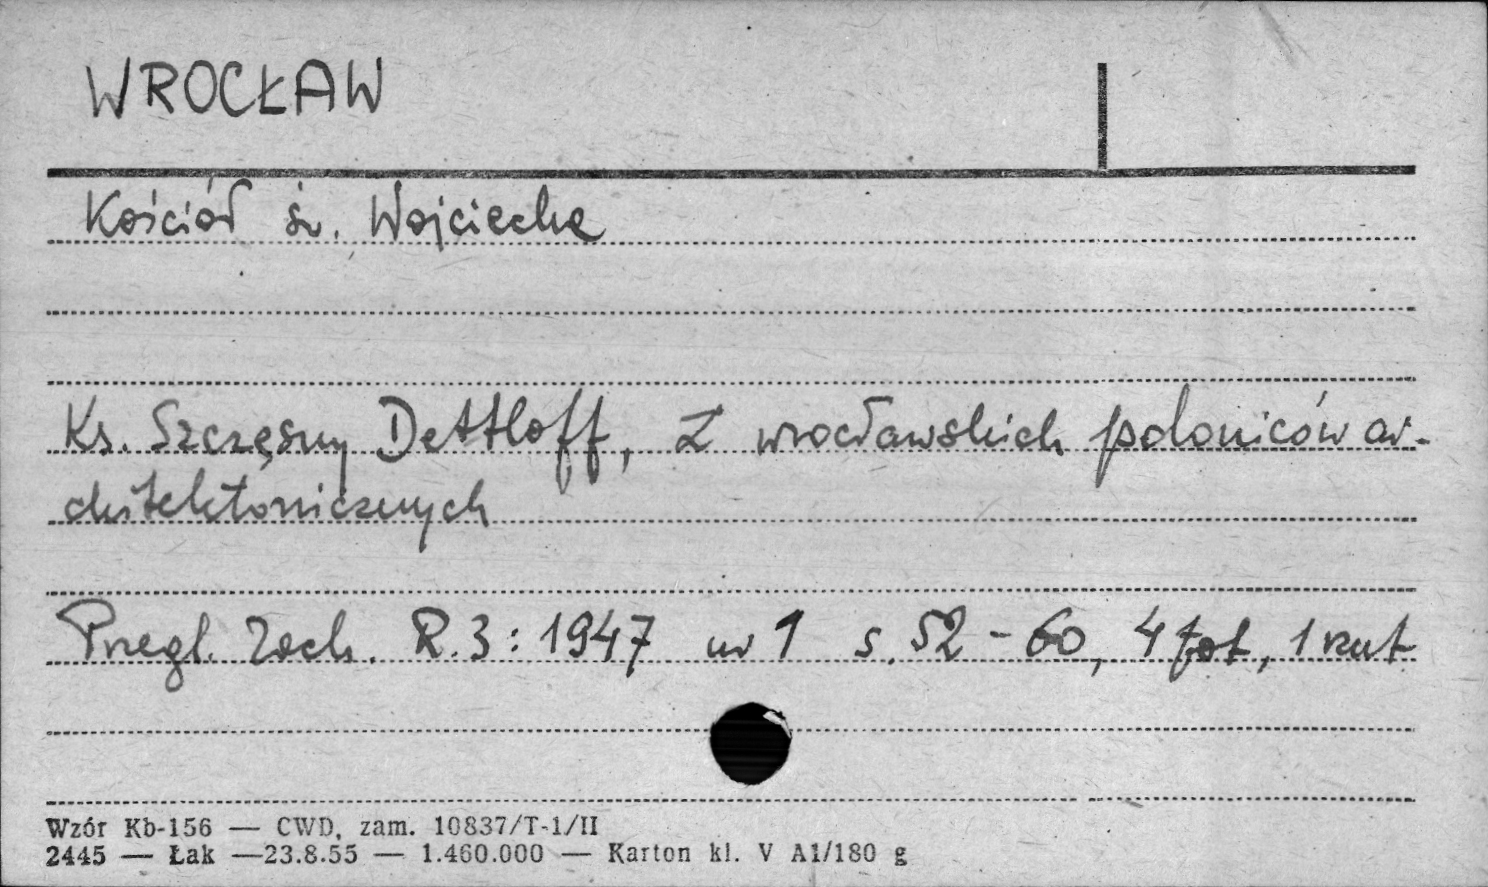 WROCŁAW
Kościół św. Wojciecha
Ks. Szczęsny Dettloff, Z wrocławskich poloniców ar-
chitektonicznych
Przegl. Zach. R. 3: 1947 nr 1 s. 52-60, 4 fot, 1 rzut
Wzór Kb-156 — CWD, zam. 10837/T-1/II
2445 — Łak —23.8.55 — 1.460.000 — Karton kl. V A1/180 g